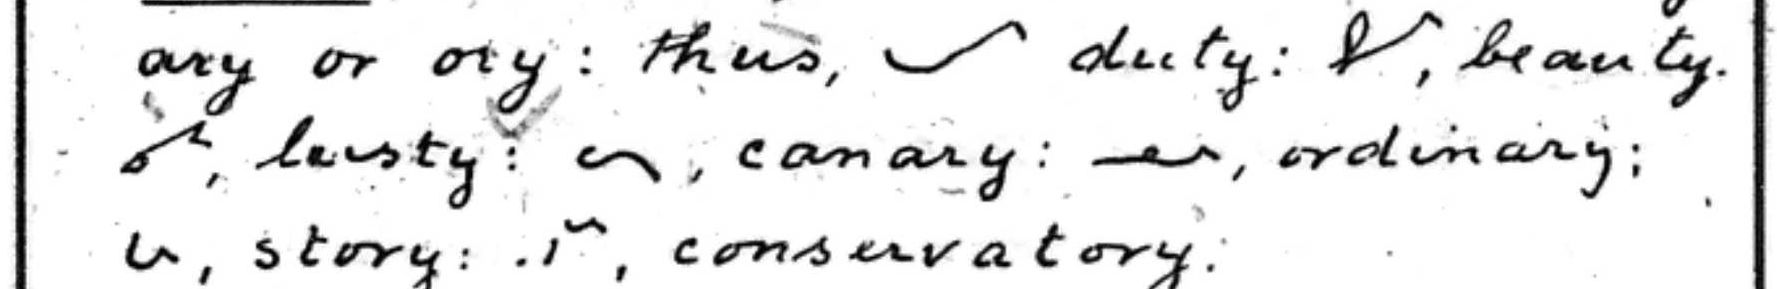 ary or ory: thus, duty: , beauty.
, lusty: , canary: , ordinary;
, story: , conservatory.